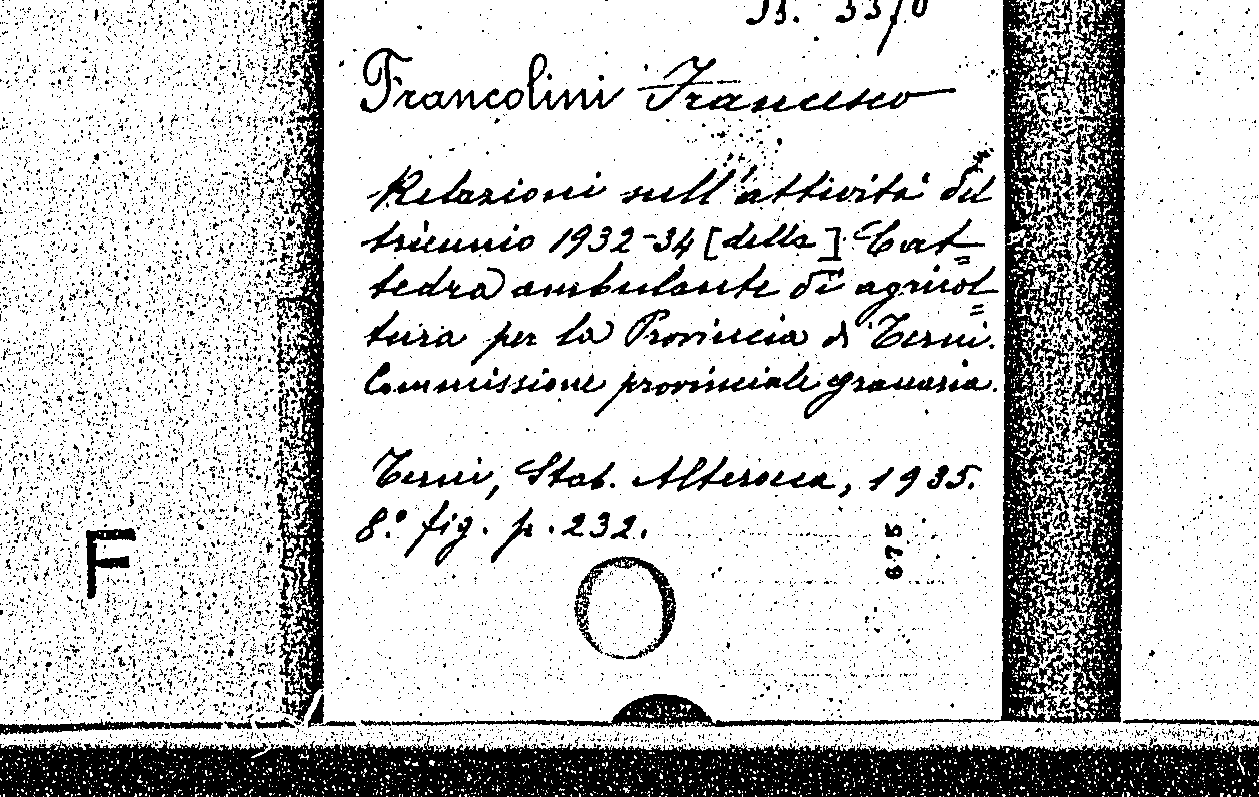 Francolini Francesco
Relazioni sull'attività del
triennio 1932-34 [della] Cat=
tedra ambulante di agricol=
tura per la Provincia di Terni.
Commissione provinciale granaria.
Terni, Stab. Alterocca, 1935.
8.° fig. p. 232.
675
F